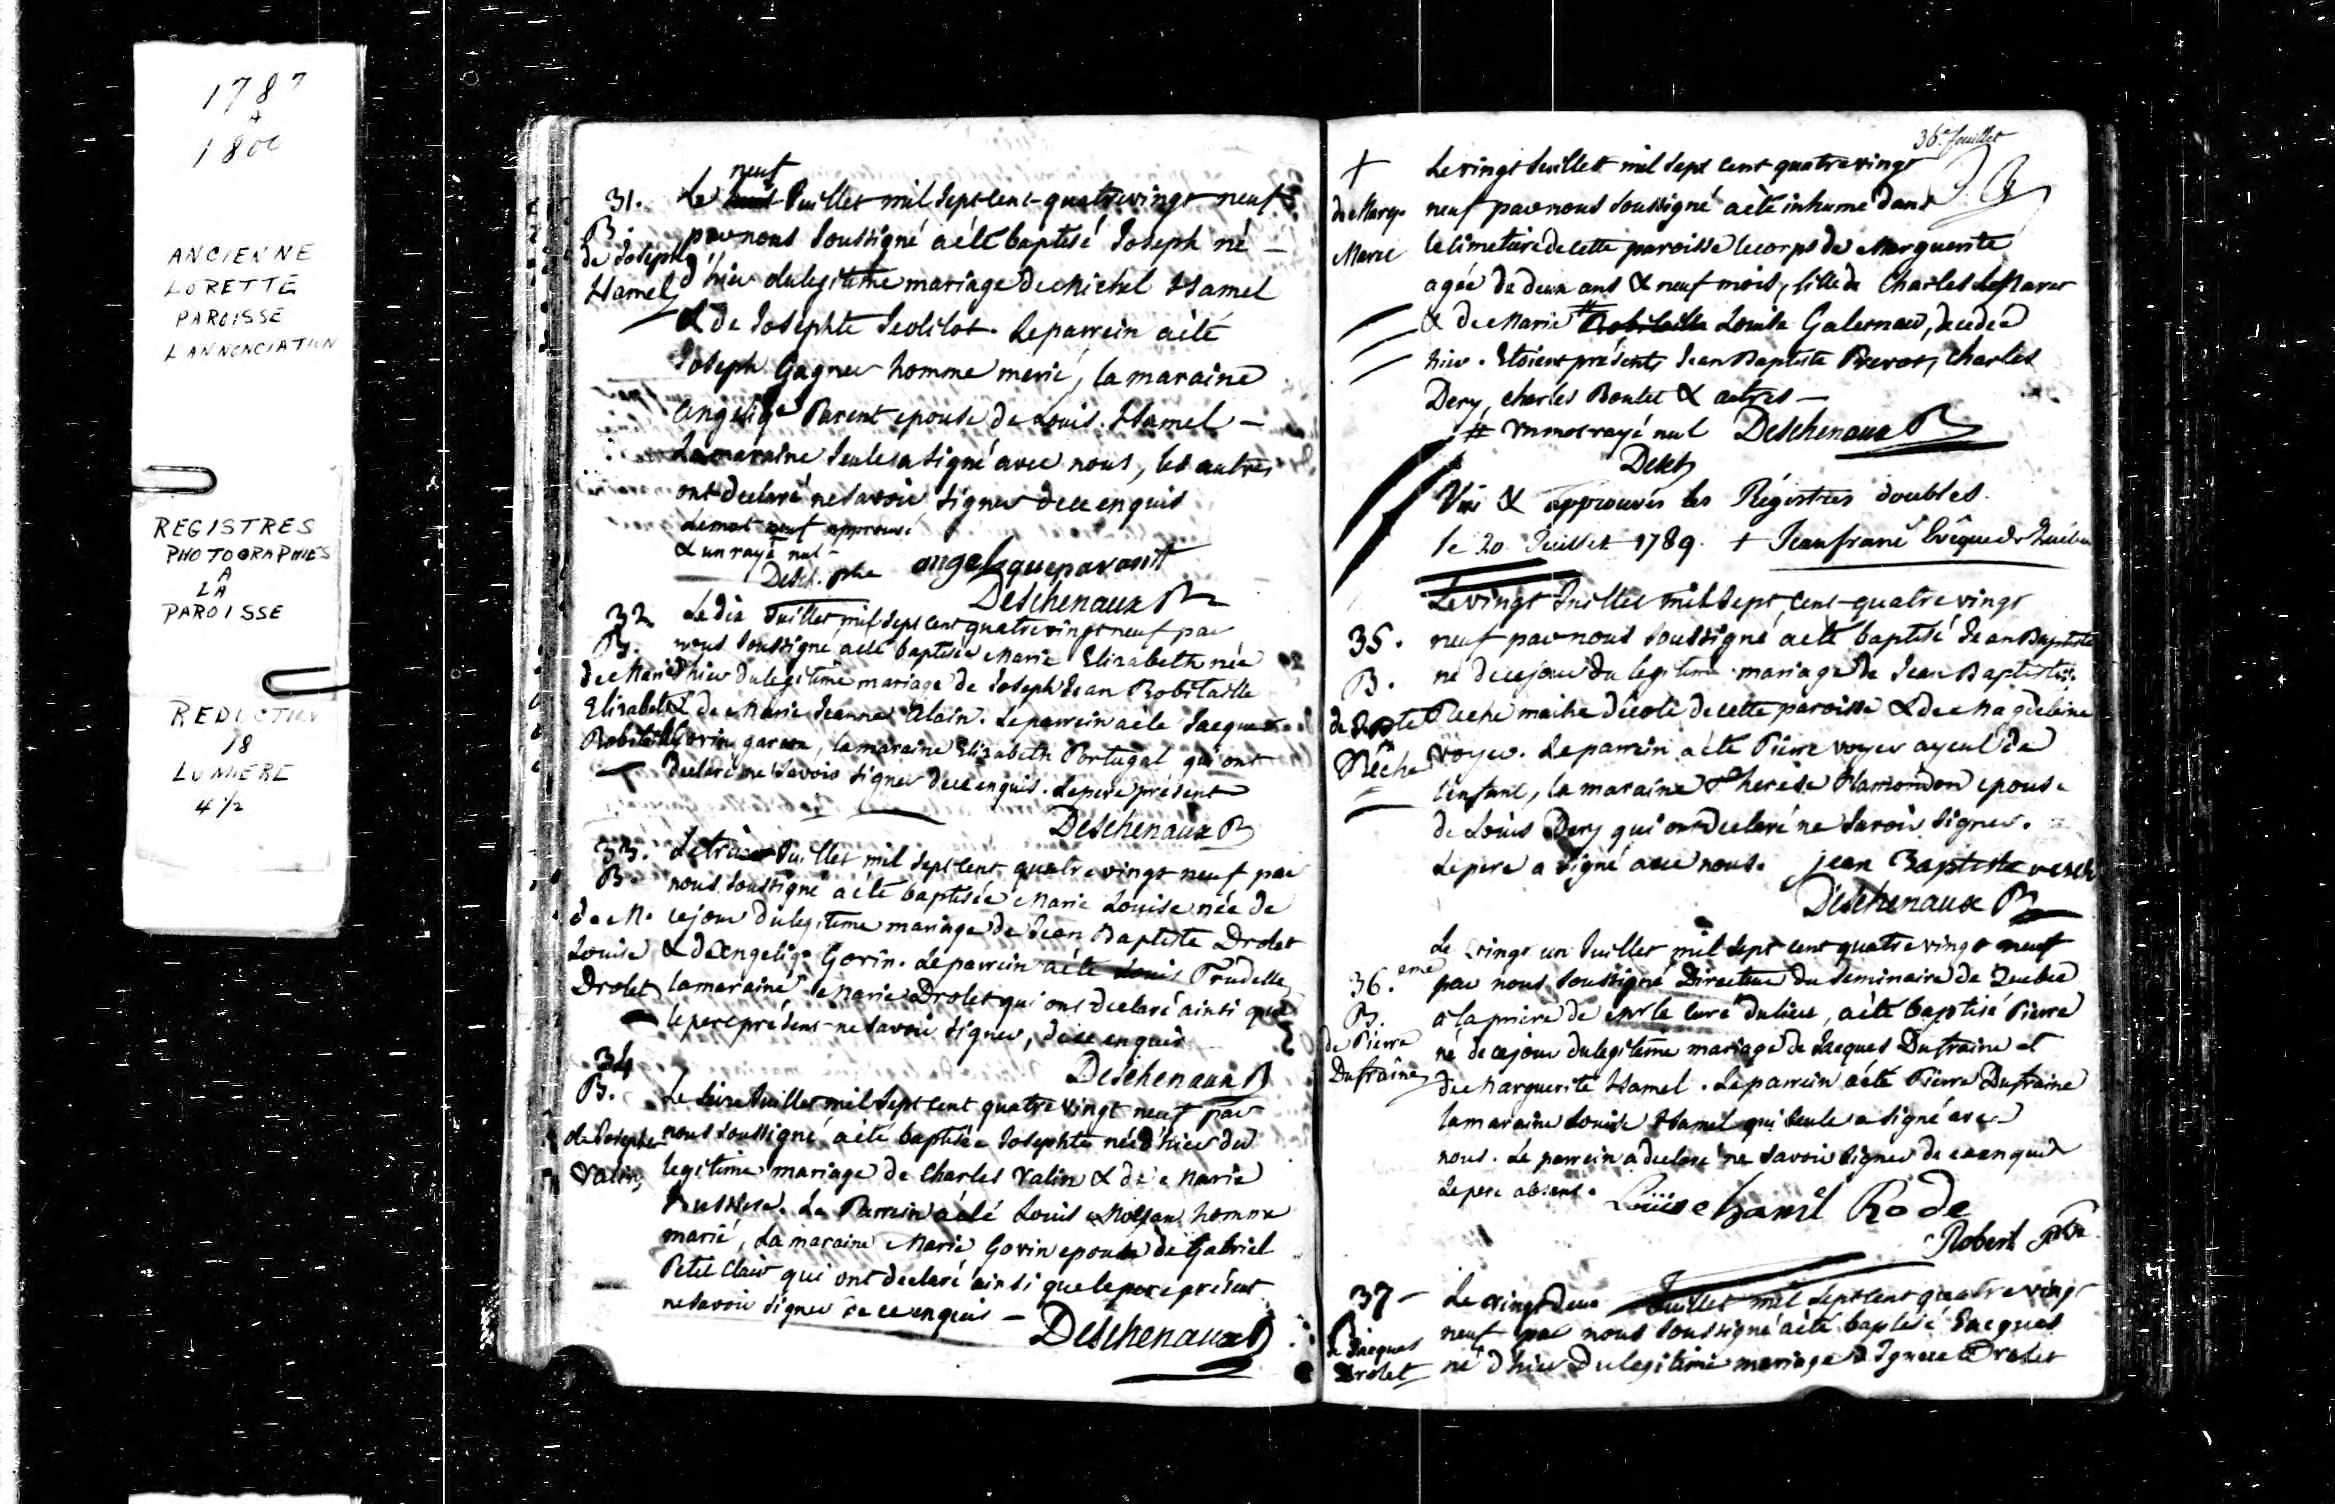 1787
A
1800
ANCIENNE
LORETTE
PAROISSE
L'ANNONCIATION
REGISTRES
PHOTOGRAPHIES
A
LA
PAROISSE
REDUCTION
18
LUMIERE
4 1/2
neuf
31. Le Juillet mil Sept cent quatrevingt neuf
B. par nous Soussigné a été baptisé Joseph né
de Joseph
Hamel d'hier du legitime mariage de Michel Hamel
& de Josephte . Le parrein a été
Joseph Gagner homme marié, la maraine
Angeliqe Parent epouse de Louis Hamel
La maraine Seule a signé avec nous, les autres
ont declaré ne Savoir signer de ce enquis
Le mot neuf approuvé
& un rayé nul
Desch. ptre angelique parant
Deschenaux
32. Le dix Juillet mil Sept cent quatrevingt neuf par
B. nous Soussigné a été baptisée Marie Elizabeth née
de Marie d'hier du legitime mariage de Joseph Jean Robitaille
Elizabeth & de Marie Jeanne Alain. Le parrein a été Jacques
Robitaille Gorin garcon, la maraine Elizabeth Portugal qui ont
declaré ne Savoir signer de ce enquis. Le pere présent
Deschenaux
33. Le Juillet mil Sept cent quatre vingt neuf par
B. nous Soussigné a été baptisée Marie Louise née de
de M. ce jour du legitime mariage de Jean Baptiste Drolet
Louise & d'Angeliqe Gorin. Le parrein a été Louis Trudelle
Drolet la maraine Marie Drolet qui ont declaré ainsi que
le pere présent ne Savoir signer, de ce enquis
Deschenaux
34
B. Le Juillet mil Sept cent quatre vingt neuf par
de Josephte nous Soussigné a été baptisée Josephte née d'hier du
Valin legitime mariage de Charles Valin & de Marie
. Le Parrein a été Louis homme
marié, La maraine Marie Gorin epouse de Gabriel
Petit Clair qui ont declaré ainsi que le pere présent
ne Savoir signer de ce enquis
Deschenaux
36e feuillet
+ Le vingt Juillet mil Sept cent quatre vingt
de Marge. neuf par nous Soussigné a été inhumé dans
Marie le Cimetiere de cette paroisse le corps de Marguerite
agée de deux ans & neuf mois, fille de Charles
& de Marie # Robitaille Louise Galernau, decedée
hier. Etoient présents Jean Baptiste Prevot, Charles
Dery, Charles Boulet & autres
# Un mot rayé nul Deschenaux
Desch
Vus & approuvés les Régistres doubles
le 20 Juillet 1789. + Jean franc Evêque de Québec
Le vingt Juillet mil Sept cent quatre vingt
35. neuf par nous Soussigné a été baptisé Jean Baptiste
B. né de ce jour du legitime mariage de Jean Baptiste
de maitre d'ecole de cette paroisse & de Magdeleine
Voyer. Le parrein a été Pierre Voyer ayeul de
l'enfant, la maraine Therese Hamondon epouse
de Louis Dery qui ont declaré ne Savoir signer.
Le pere a signé avec nous. jean Baptiste
Deschenaux
Le vingt un Juillet mil Sept cent quatre vingt neuf
36.eme par nous Soussigné Directeur du Seminaire de Quebec
B. a la priere de Mr le Curé du lieu, a été baptisé Pierre
de Pierre né de ce jour du legitime mariage de Jacques Dufraine et
Dufraine de Marguerite Hamel. Le parrein a été Pierre Dufraine
la maraine Louise Hamel qui Seule a signé avec
nous. Le parrein a declaré ne Savoir signer de ce enquis
Le pere absent. Louise hamel
Robert ptre
37 Le vingt deux Juillet mil Sept cent quatre vingt
B neuf par nous Soussigné a été baptisé Jacques
de Jacques
Drolet né d'hier du legitime mariage d'Ignace Drolet